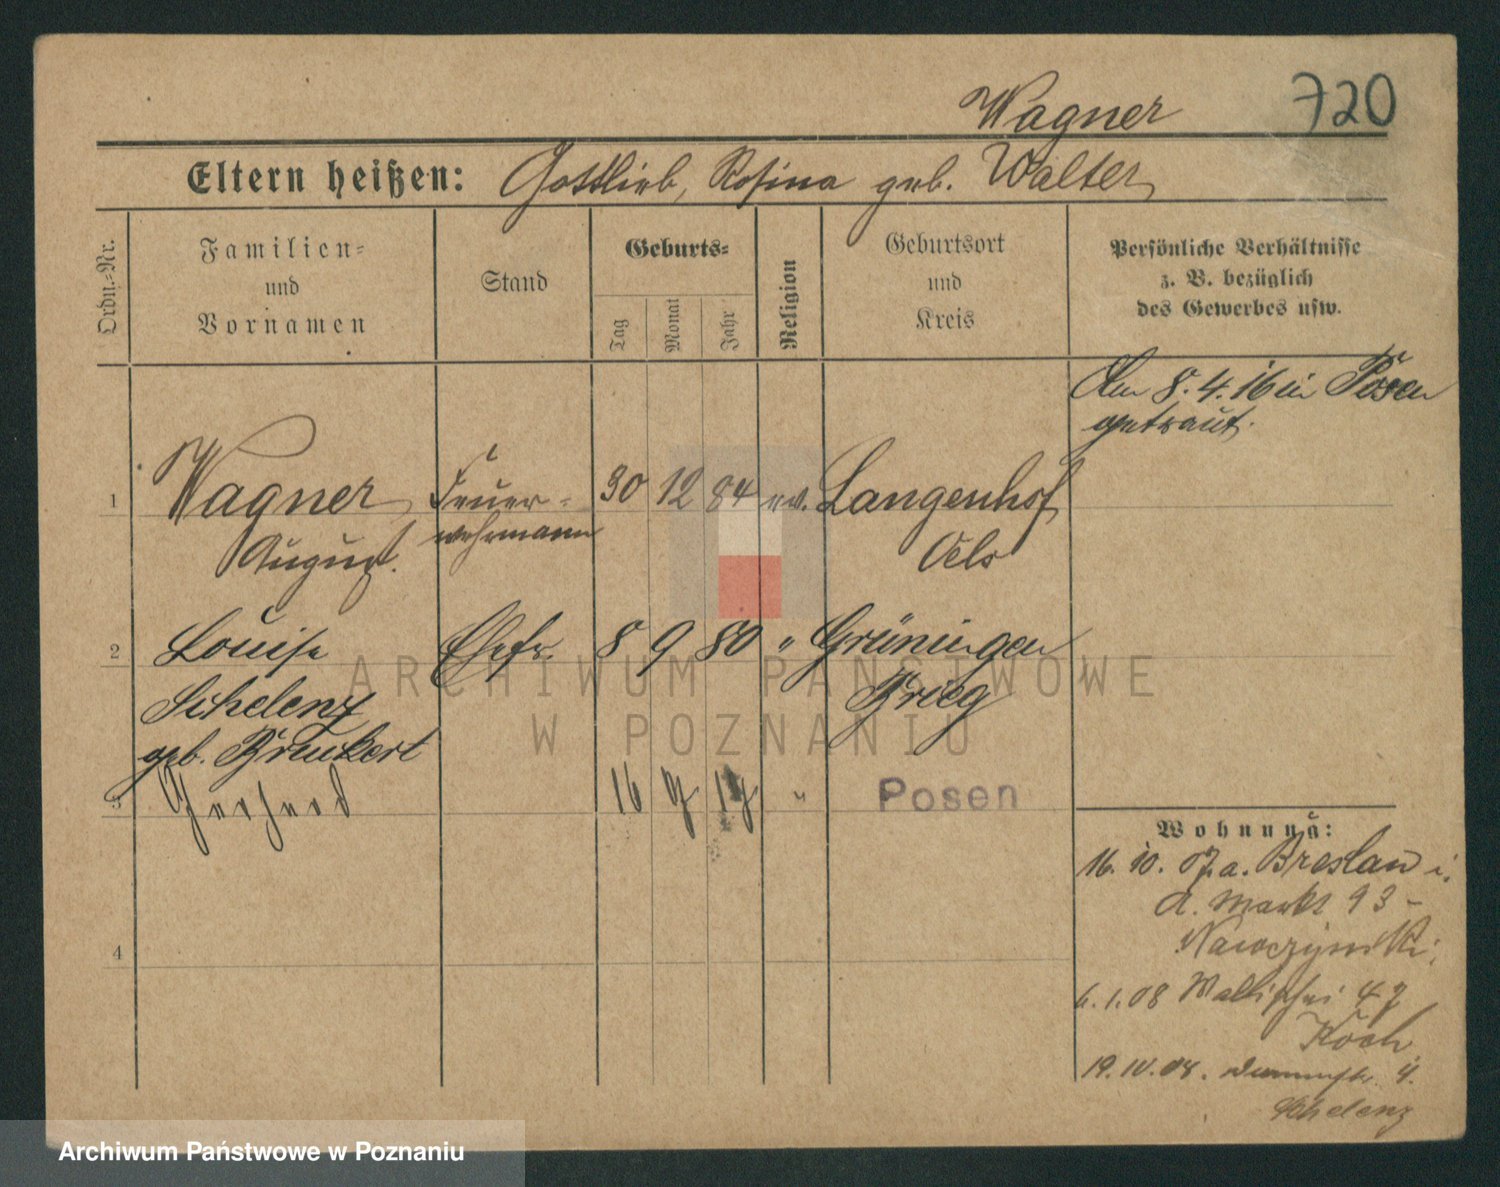 Wagner 720
Eltern heißen: Gottlieb, Rosina geb. Walter
Ordn.-Nr.
Familien-
und
Vornamen
Stand
Geburts-
Tag
Monat
Jahr
Religion
Geburtsort
und
Kreis
Persönliche Verhältnisse
z. B. bezüglich
des Gewerbes usw.
Am 8.4.16 in Posen
getraut.
1 Wagner Feuer- 30 12 84 ev. Langenhof
August. wehrmann Oels
2 Louise Ehefr. 8 9 80 " Grüningen
Schelenz Brieg
geb. Brenkert
3 Gerhard 16 9 17 " Posen
4
Wohnung:
16. 10. 07. a. Breslau i.
A. Markt 93-
6.1.08 Wallischei 47
Koch.
19. IV. 08. 4.
Schelenz
ARCHIWUM PAŃSTWOWE
W POZNANIU
Archiwum Państwowe w Poznaniu